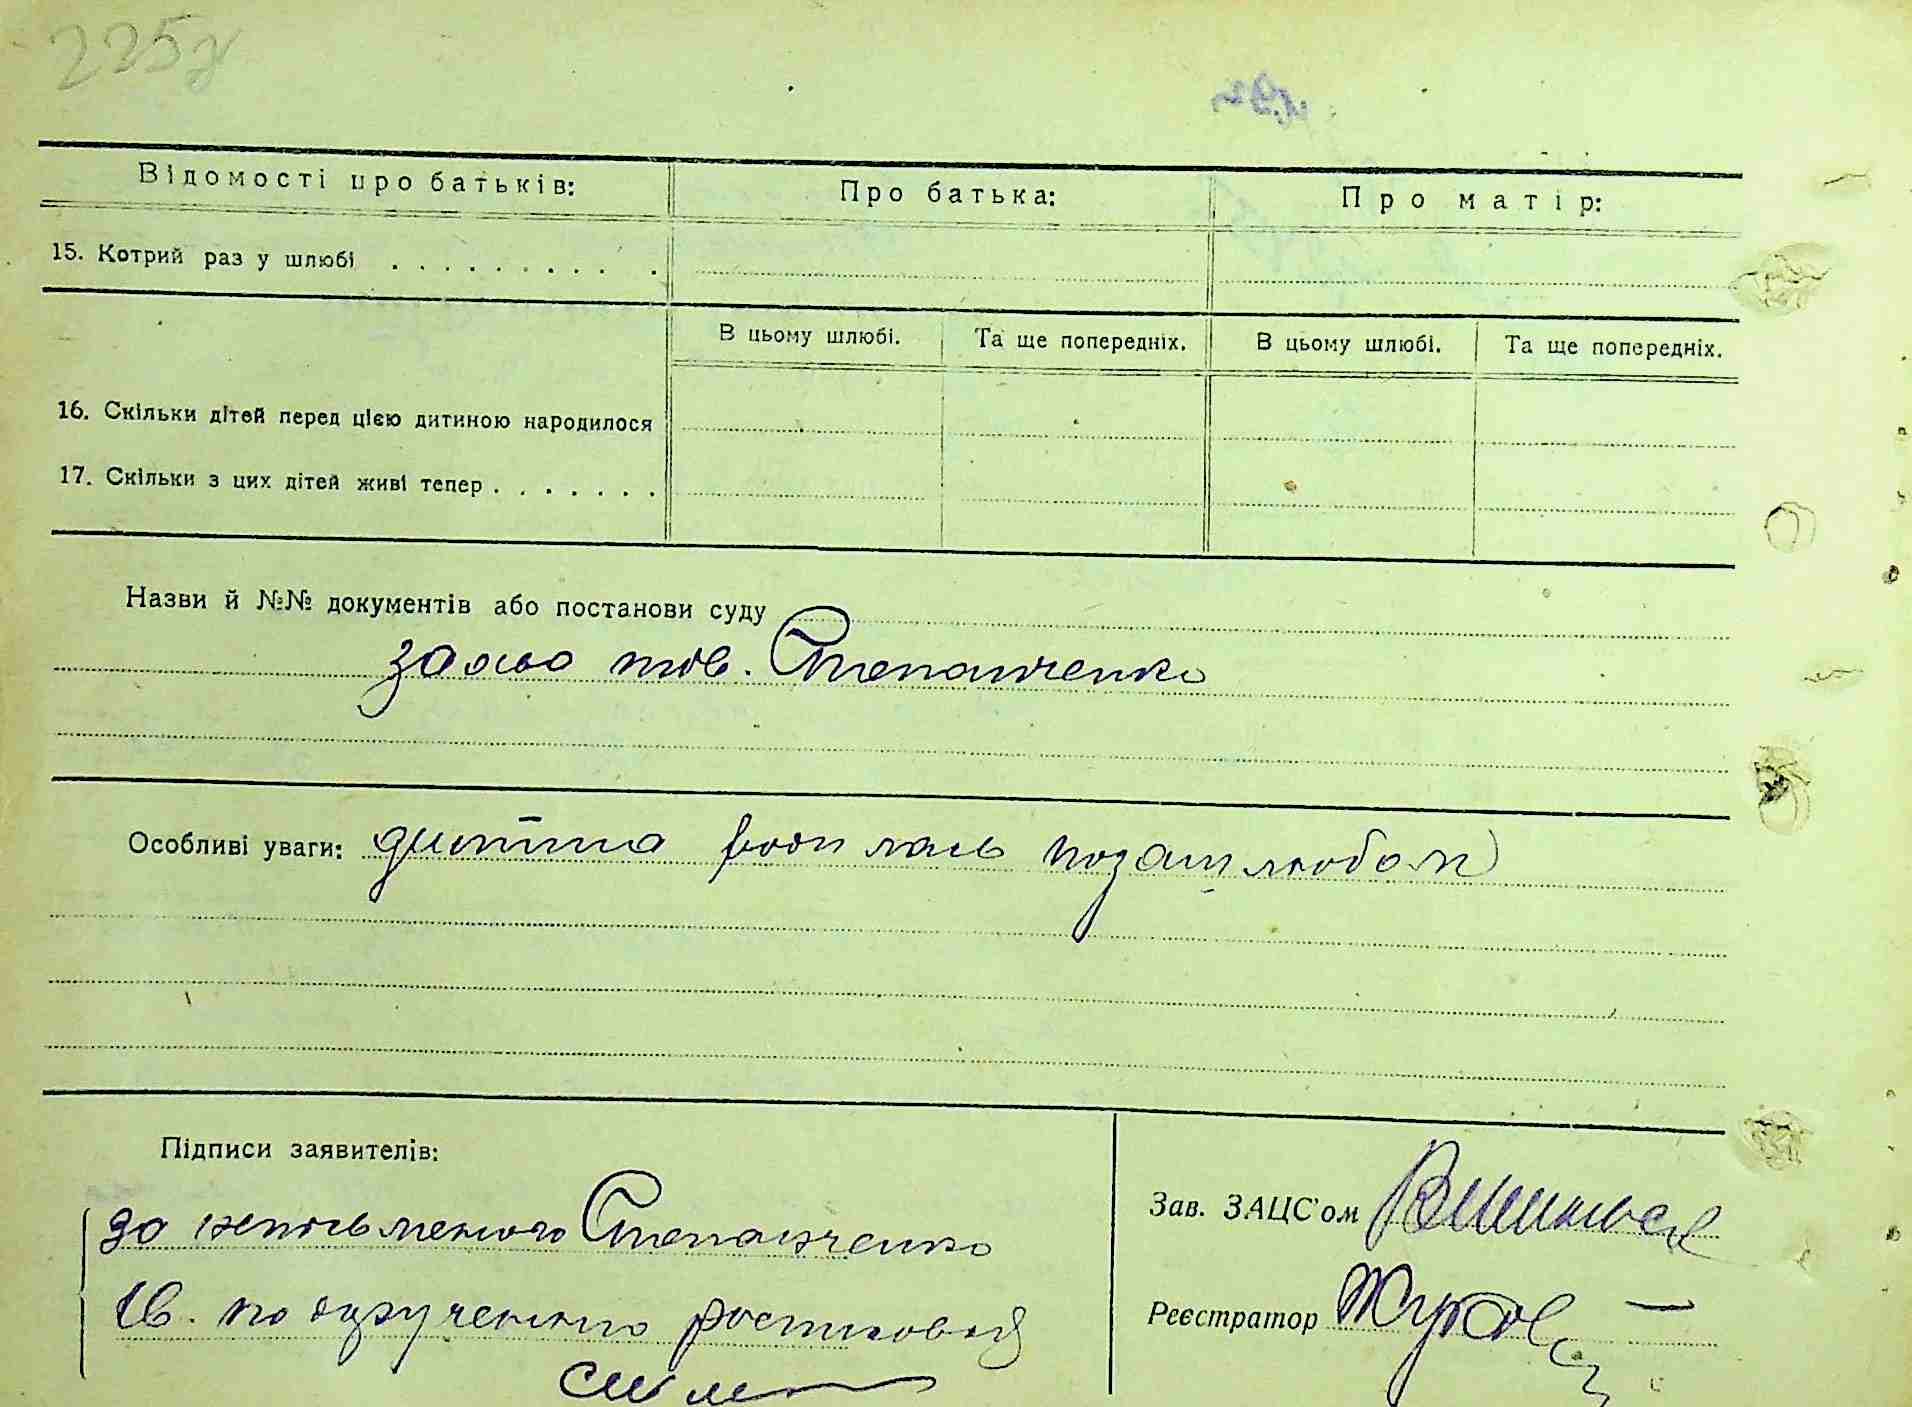 225
Відомості про батьків: Про батька: Про матір:
15. Котрий раз у шлюбі . . . . . . . . . .
В цьому шлюбі. Та ще попередніх. В цьому шлюбі. Та ще попередніх.
16. Скільки дітей перед цією дитиною народилося
17. Скільки з цих дітей живі тепер . . . . . . .
Назви й №№ документів або постанови суду
тов. Степанченко
Особливі уваги: дитина родилась позашлюбом
Підписи заявителів:
за неписьменого Степанченко
Ів. по дорученню
Зав. ЗАЦС'ом
Реєстратор